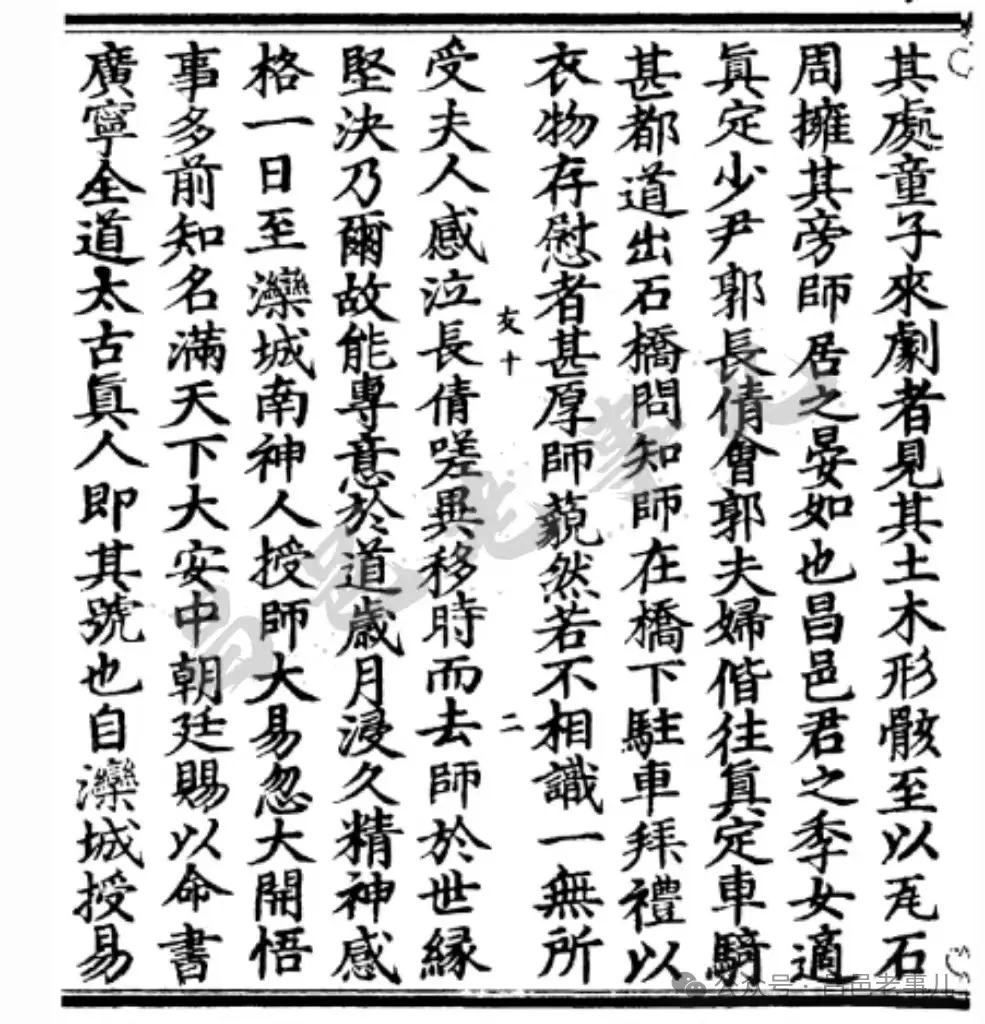 其處童子來劇者見其土木形骸至以瓦石
周擁其旁師居之晏如也昌邑君之季女適
真定少尹郭長倩會郭夫婦偕往真定車騎
甚都道出石橋問知師在橋下駐車拜禮以
衣物存慰者甚厚師藐然若不相識一無所
友十 二
受夫人感泣長倩嗟異移時而去師於世緣
堅決乃爾故能專意於道歲月浸久精神感
格一日至灤城南神人授師大易忽大開悟
事多前知名滿天下大安中朝廷賜以命書
廣寧全道太古真人即其號也自灤城授易
公众号·昌邑老事儿
昌邑老事儿